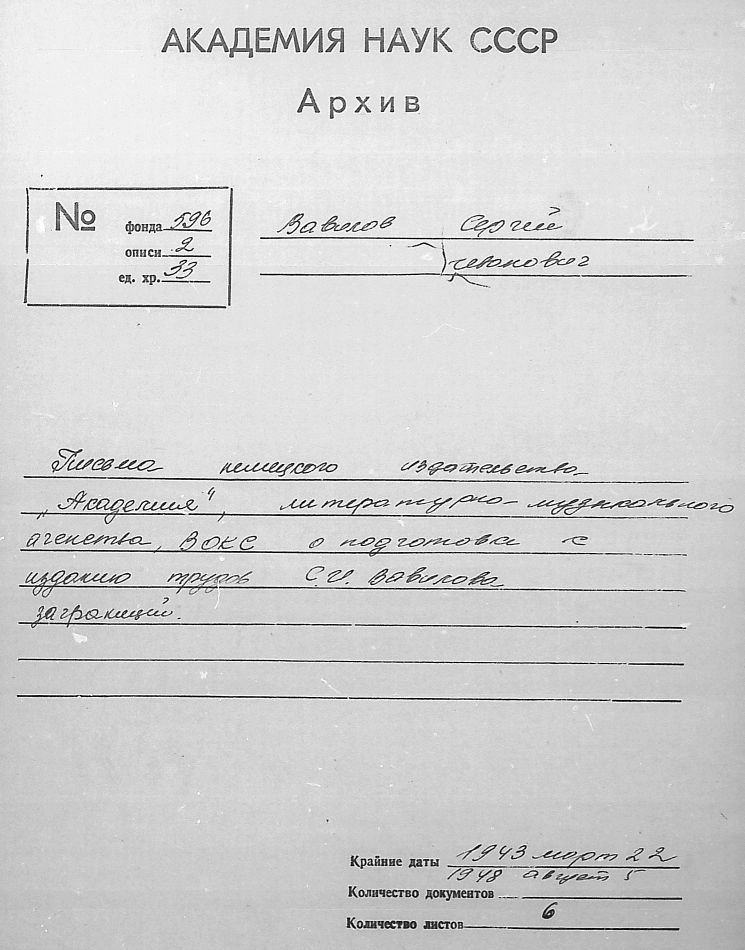 АКАДЕМИЯ НАУК СССР
Архив
№
фонда 596
описи 2
ед. хр. 33
Вавилов Сергий
Иванович
Письма немецкого издательства
„Академия", литературно-музыкального
агенства, ВОКС о подготовке к
изданию трудов С.И. Вавилова
заграницей.
Крайние даты 1943 март 22
1948 август 5
Количество документов
Количество листов 6